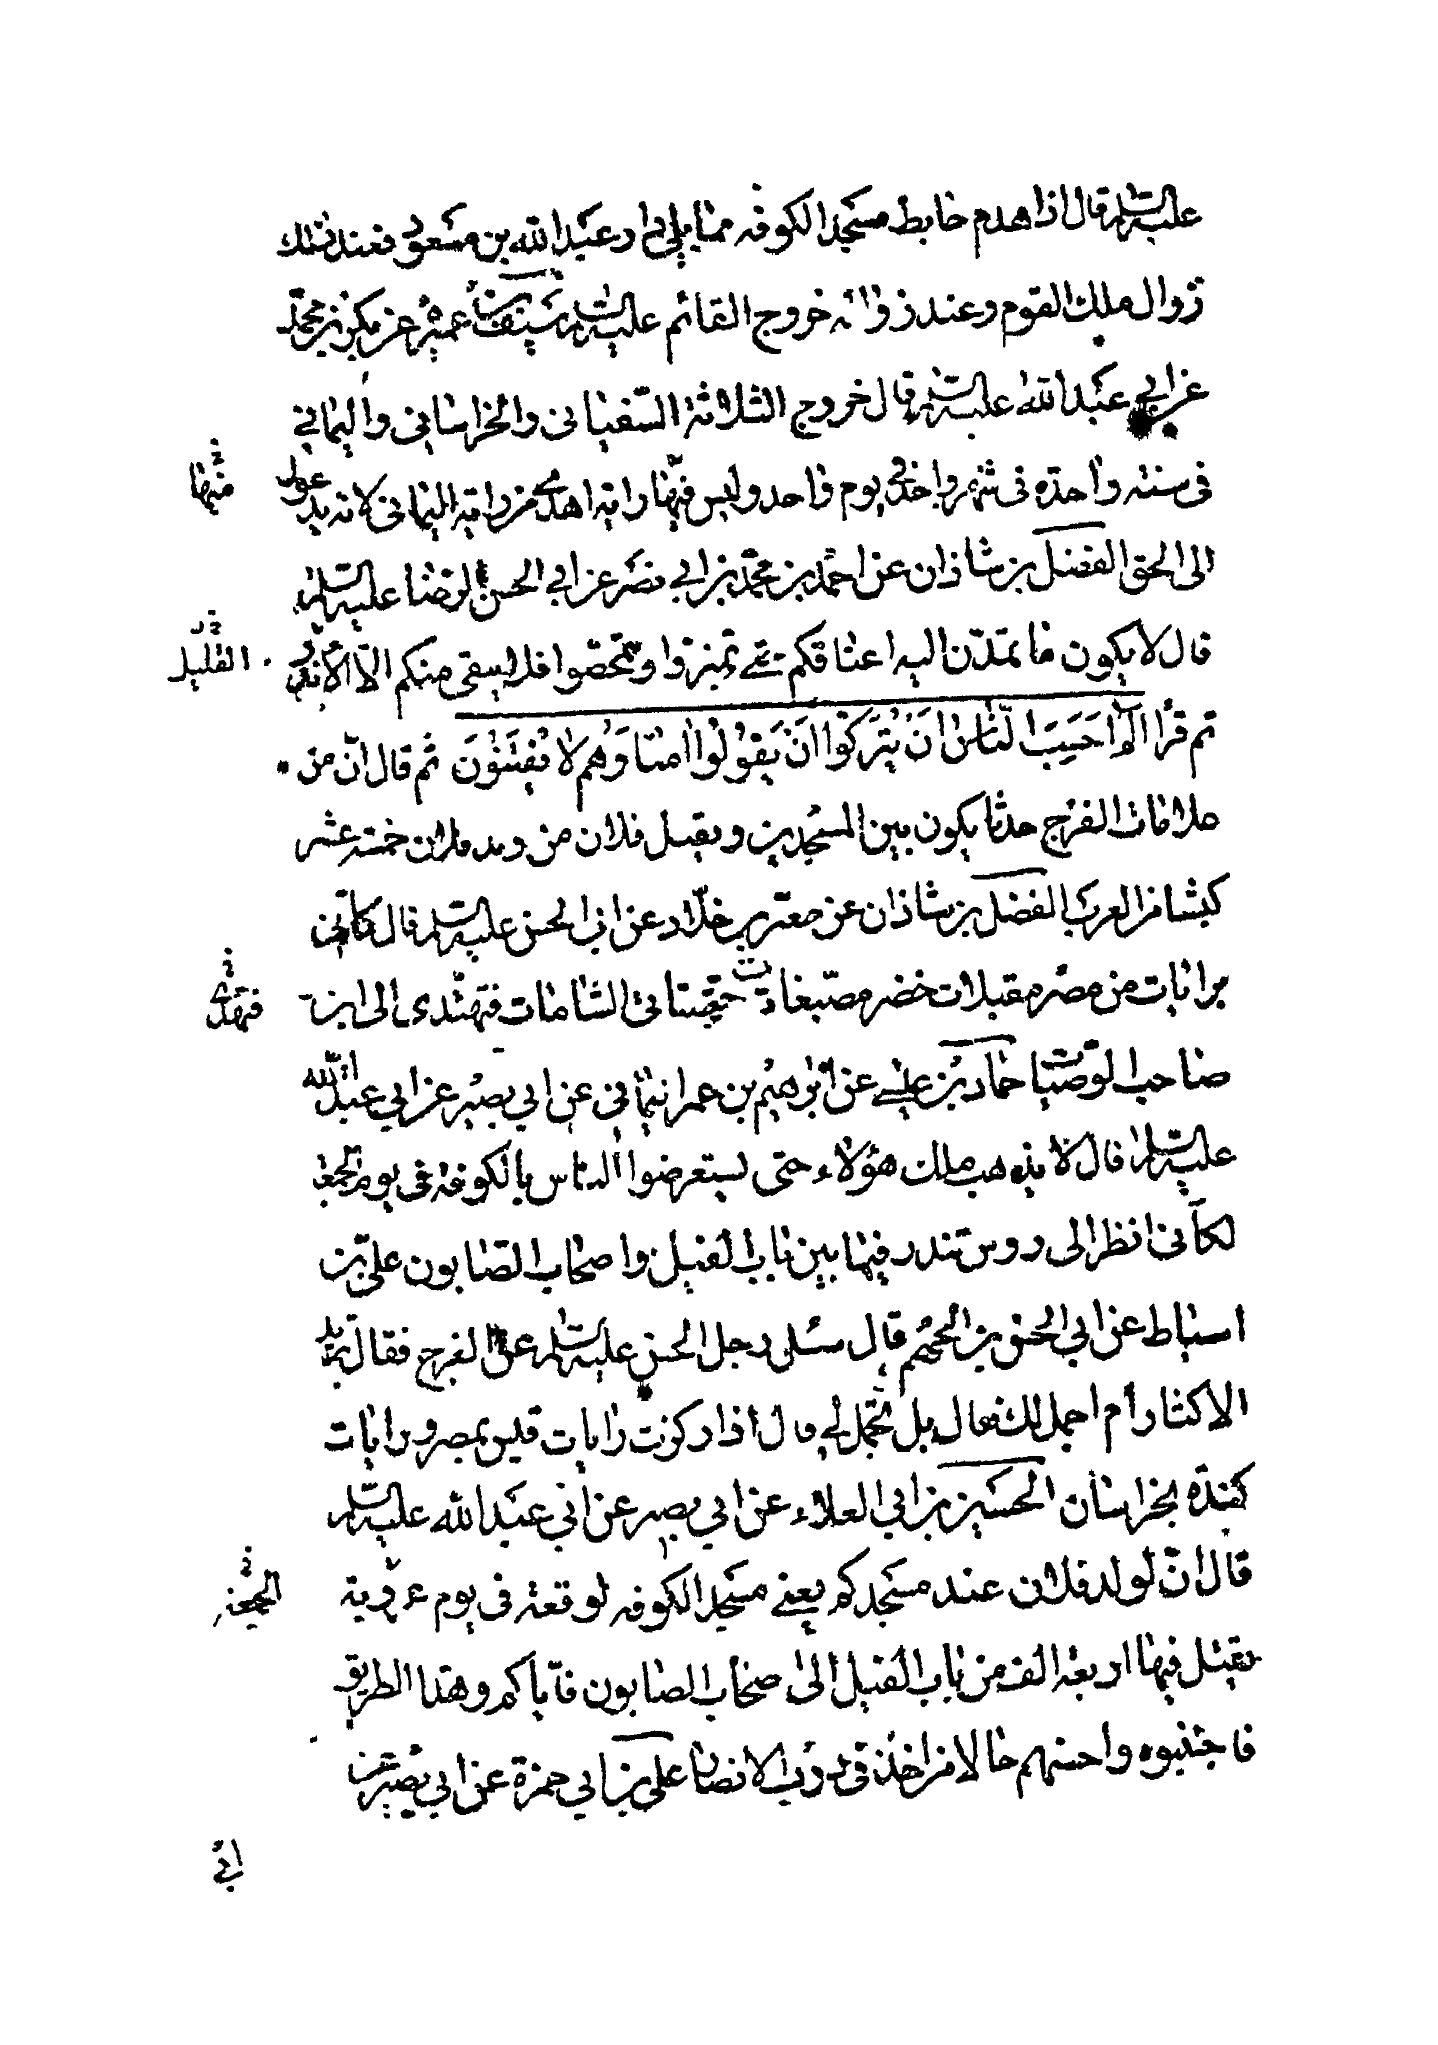 عليه السلام قال اذا هدم حايط مسجد الكوفه مما يلي دار عبد الله بن مسعود فعند ذلك
زوال ملك القوم وعند زواله خروج القائم عليه السلام سيف بن عميره عن بكر بن محمد
عن ابي عبد الله عليه السلام قال خروج الثلاثة السفياني والخراساني واليماني
في سنة واحدة في شهر واحد في يوم واحد وليس فيها راية اهدى من راية اليماني لانه يدعوا
منها
الى الحق الفضل بن شاذان عن احمد بن محمد بن ابي نصر عن ابي الحسن الرضا عليه السلام
قال لا يكون ما تمدّن اليه اعناقكم حتى تميزوا وتمحصوا فلا يبقى منكم الّا الأندر
القليل
ثم قرأ الم احسب الناس ان يتركوا ان يقولوا امنا وهم لا يفتنون ثم قال انّ من
علامات الفرج حدثا يكون بين المسجدين ويقتل فلان من ولد فلان خمسة عشر
كبشا من العرب الفضل بن شاذان عن معمر بن خلّاد عن ابي الحسن عليه السلام قال كأني
برايات من مصر مقبلات خضر مصبغات حتى تأتي الشامات فتهتدى الى ابن
فتهدى
صاحب الوصيات حماد بن عيسى عن ابرهيم بن عمر اليماني عن ابي بصير عن ابي عبد الله
عليه السلام قال لا يذهب ملك هؤلاء حتى يستعرضوا الناس بالكوفة في يوم الجمعة
لكأني انظر الى روس تندر فيما بين باب الفيل واصحاب الصابون علي بن
اسباط عن ابي الحسن بن الجهم قال سئل رجل ابا الحسن عليه السلام عن الفرج فقال تريد
الاكثار أم اجمل لك فقال بل تجمل لي قال اذا ركزت رايات قيس بمصر ورايات
كندة بخراسان الحسين بن ابي العلاء عن ابي بصير عن ابي عبد الله عليه السلام
قال انّ لولد فلان عند مسجدكم يعني مسجد الكوفه لوقعة في يوم عروبة
الجمعة
يقتل فيها اربعة الف من باب الفيل الى صحاب الصابون فاياكم وهذا الطريق
فاجتنبوه واحسنهم حالا من اخذ في درب الانصار علي بن ابي حمزة عن ابي بصير عن
ابي